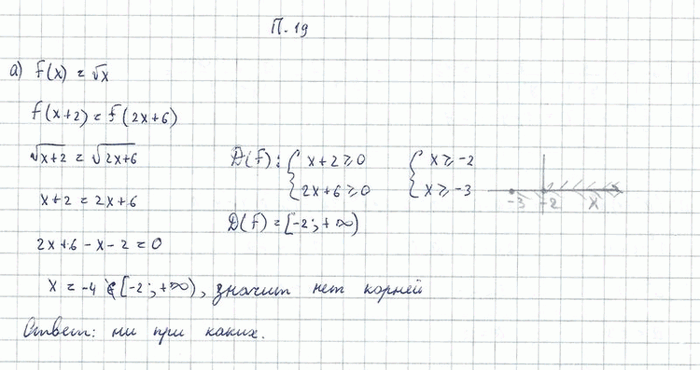 П. 19
а) f(x) = √x
f(x+2) = f(2x+6)
√x+2 = √2x+6
D(f): { x+2 ≥ 0 { x ≥ -2
2x+6 ≥ 0 x ≥ -3
-3 -2 x
x+2 = 2x+6
D(f) = [-2; +∞)
2x+6-x-2 = 0
x = -4 ∉ [-2; +∞), значит нет корней
Ответ: ни при каких.